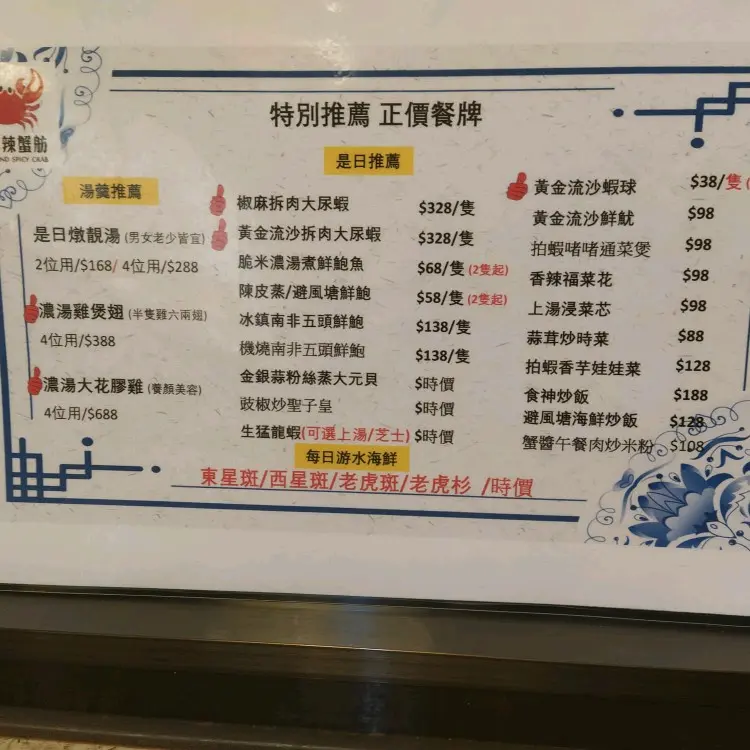 辣蟹舫
ND SPICY CRAB
特別推薦 正價餐牌
湯羹推薦
是日燉靚湯 (男女老少皆宜)
2位用/$168/ 4位用/$288
濃湯雞煲翅 (半隻雞六兩翅)
4位用/$388
濃湯大花膠雞 (養顏美容)
4位用/$688
是日推薦
椒麻拆肉大尿蝦 $328/隻
黃金流沙拆肉大尿蝦 $328/隻
脆米濃湯煮鮮鮑魚 $68/隻 (2隻起)
陳皮蒸/避風塘鮮鮑 $58/隻 (2隻起)
冰鎮南非五頭鮮鮑 $138/隻
機燒南非五頭鮮鮑 $138/隻
金銀蒜粉絲蒸大元貝 $時價
豉椒炒聖子皇 $時價
生猛龍蝦(可選上湯/芝士) $時價
黃金流沙蝦球 $38/隻 (
黃金流沙鮮魷 $98
拍蝦啫啫通菜煲 $98
香辣福菜花 $98
上湯浸菜芯 $98
蒜茸炒時菜 $88
拍蝦香芋娃娃菜 $128
食神炒飯 $188
避風塘海鮮炒飯 $128
蟹醬午餐肉炒米粉 $108
每日游水海鮮
東星斑/西星斑/老虎斑/老虎杉 /時價